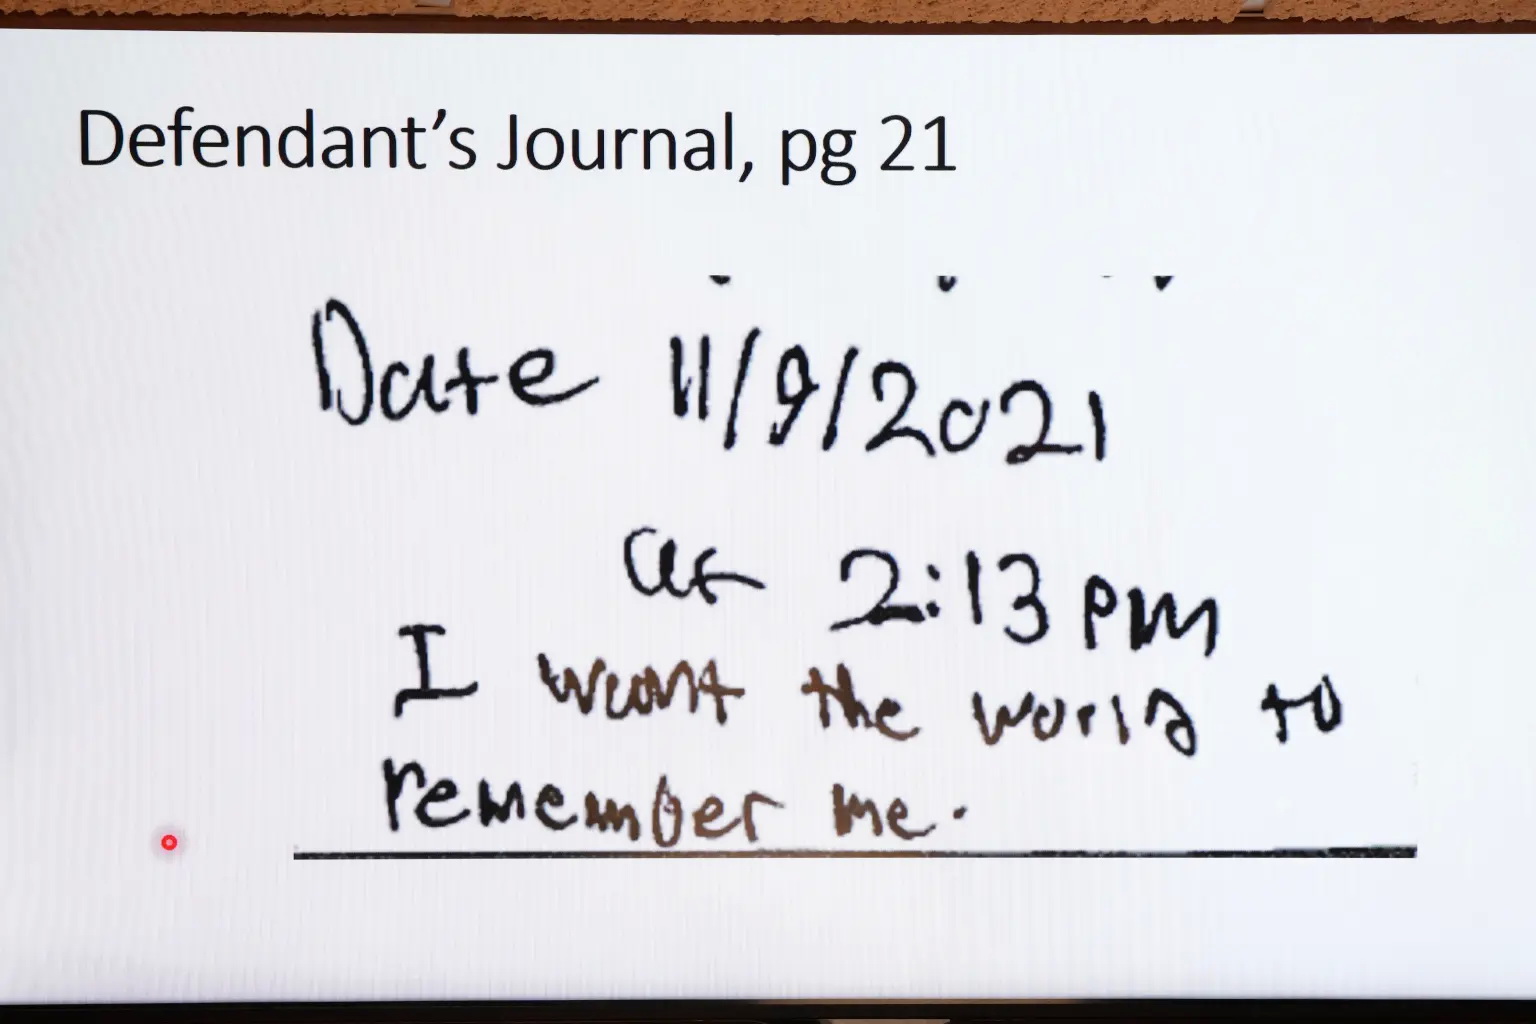 Defendant’s Journal, pg 21
Date 11/9/2021
at 2:13 pm
I want the world to
remember me.